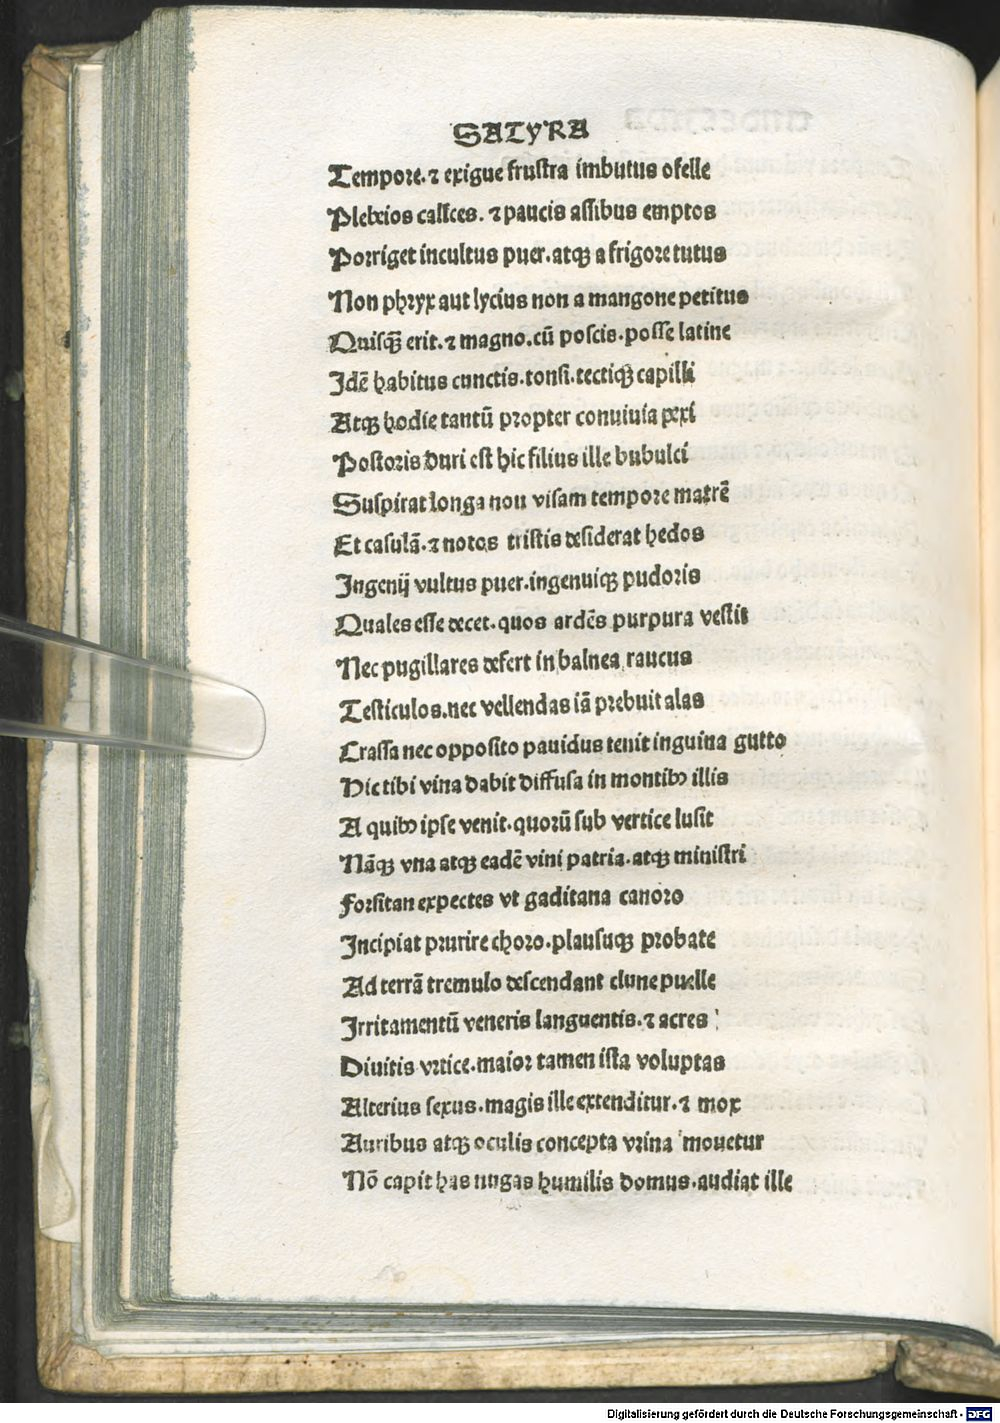 SATyRA
Tempore. ⁊ exigue frustra imbutus ofelle
Plebeios calices. ⁊ paucis assibus emptos
Porriget incultus puer. atqꝫ a frigore tutus
Non phryx aut lycius non a mangone petitus
Quisqꝫ̄ erit. ⁊ magno. cū poscis. posse latine
Idē habitus cunctis. tonsi. tectiqꝫ capilli
Atqꝫ hodie tantū propter conuiuia pexi
Postoris duri est hic filius ille bubulci
Suspirat longa non visam tempore matrē
Et casulā. ⁊ notos tristis desiderat hedos
Ingenij vultus puer. ingenuiqꝫ pudoris
Quales esse decet. quos ardēs purpura vestit
Nec pugillares defert in balnea raucus
Testiculos. nec vellendas iā prebuit alas
Crassa nec opposito pauidus tenit inguina gutto
Hic tibi vina dabit diffusa in montibꝰ illis
A quibꝰ ipse venit. quorū sub vertice lusit
Nāqꝫ vna atqꝫ eadē vini patria. atqꝫ ministri
Forsitan expectes vt gaditana canoro
Incipiat prurire choro. plausuqꝫ probate
Ad terrā tremulo descendant clune puelle
Irritamentū veneris languentis. ⁊ acres
Diuitis vrtice. maior tamen ista voluptas
Alterius sexus. magis ille extenditur. ⁊ mox
Auribus atqꝫ oculis concepta vrina mouetur
Nō capit has nugas humilis domus. audiat ille
Digitalisierung gefördert durch die Deutsche Forschungsgemeinschaft - DFG